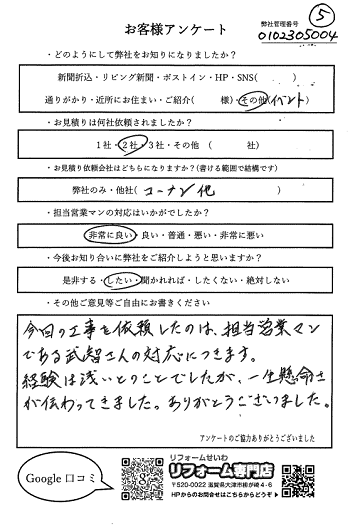 ⑤
弊社管理番号
0102305004
お客様アンケート
・どのようにして弊社をお知りになりましたか？
新聞折込・リビング新聞・ポストイン・HP・SNS(　　　)
通りがかり・近所にお住まい・ご紹介(　　　様)・その他(イベント)
・お見積りは何社依頼されましたか？
1社・2社・3社・その他　(　　　社)
・お見積り依頼会社はどちらになりますか？(書ける範囲で結構です)
弊社のみ・他社(　コーナン他　)
・担当営業マンの対応はいかがでしたか？
非常に良い・良い・普通・悪い・非常に悪い
・今後お知り合いに弊社をご紹介しようと思いますか？
是非する・したい・聞かれれば・したくない・絶対しない
・その他ご意見等ご自由にお書きください
今回の工事を依頼したのは、担当営業マン
である武智さんの対応につきます。
経験は浅いとのことでしたが、一生懸命さ
が伝わってきました。ありがとうございました。
アンケートのご協力ありがとうございました
Google 口コミ
リフォームせいわ
リフォーム専門店
〒520-0022 滋賀県大津市柳が崎4-6
HPからのお問合せはこちらからどうぞ▶